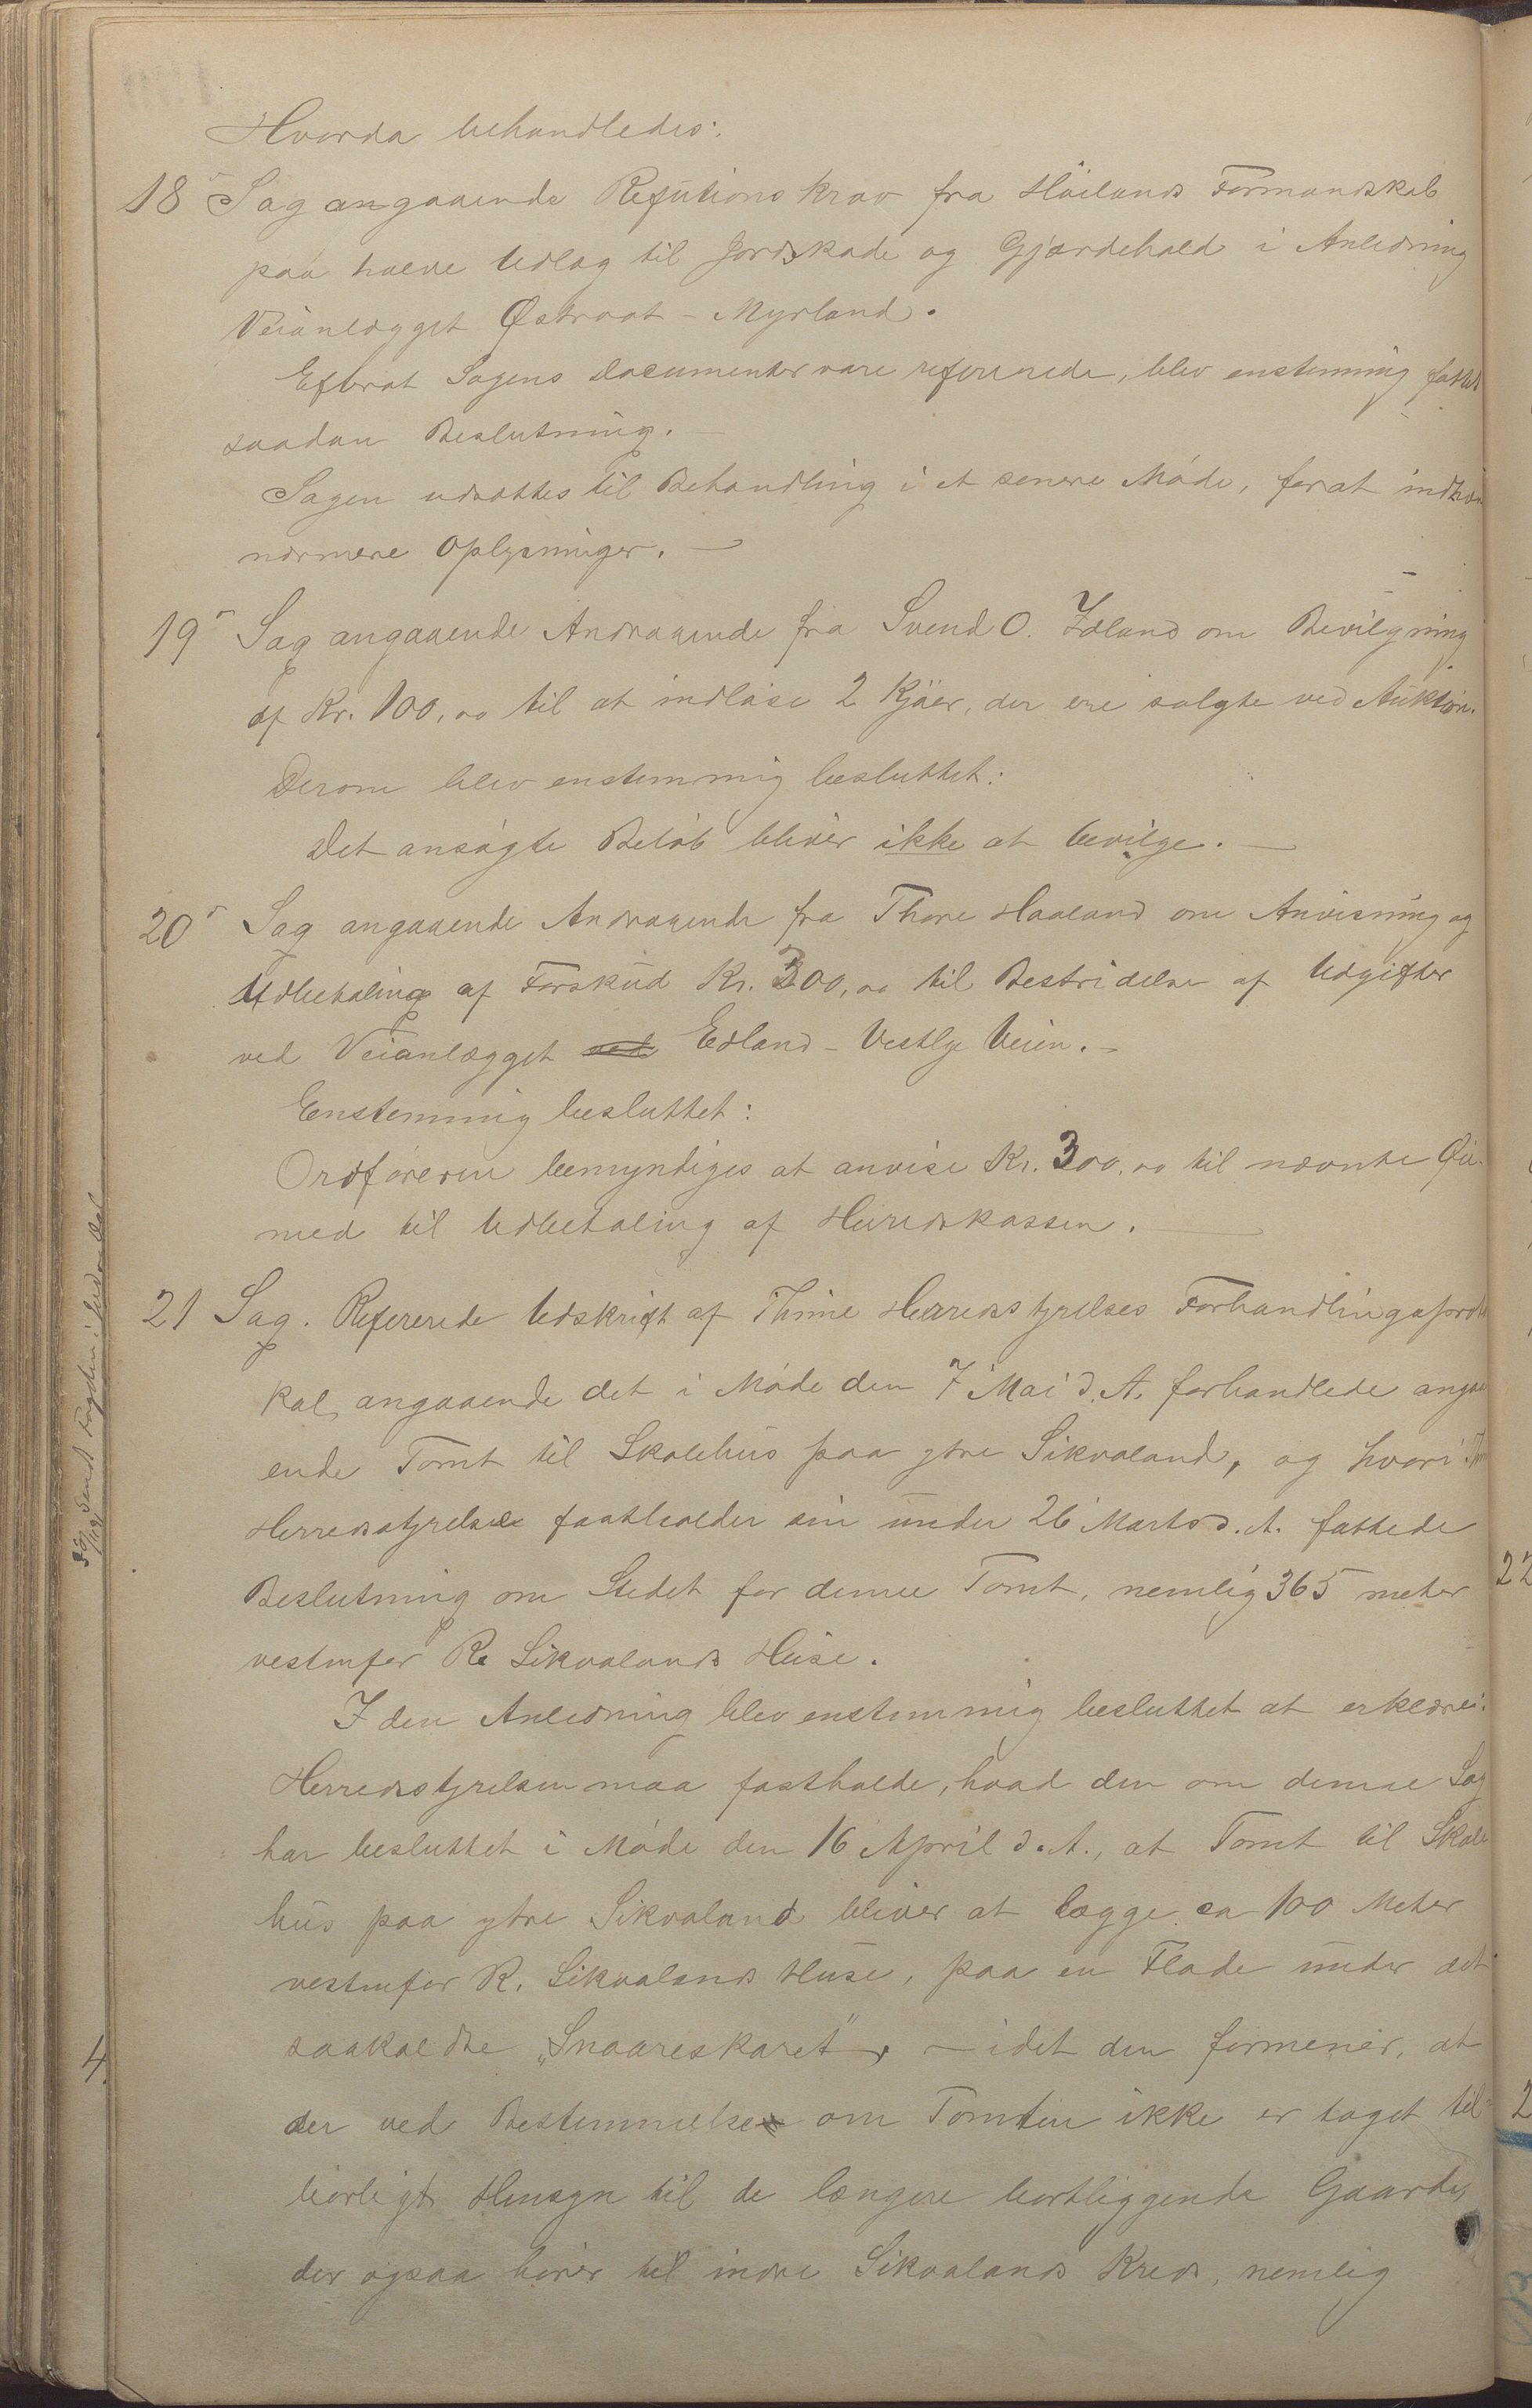 Hvorda behandledes:
18 Sag angaaende Refutions krav fra Höilands Formandskab
paa halve Udlæg til Jordskade og Gjærdehold i Anledning
Veianlægget Østraat - Myrland.
Efterat Sagens Documenter vare refererede, blev enstemmig fattet
saadan Beslutning. —
Sagen udsættes til Behandling i et senere Möde, forat
nærmere Oplysninger. —
19 Sag angaaende Andragende fra Svend O. Edland om Bevilgning
af Kr. 100,00 til at indløse 2 Kjöer, der ere solgte ved Auktion.
Derom blev enstemmig besluttet:
Det ansøgte Beløb bliver ikke at bevilge. —
20 Sag angaaende Andragende fra Thore Haaland om Anvisning og
Udbetaling af Forskud Kr. 300,00 til Bestridelse af Udgifter
ved Veianlægget ved Edland - Vestly Veien. -
Enstemmig besluttet:
Ordføreren bemyndiges at anvise Kr. 300,00 til nævnte Øie-
med til Udbetaling af Herredskassen. —
21 Sag. Refererede Udskrift af Thime Herredsstyrelses Forhandlingsproto
kol, angaaende det i Möde den 7 Mai d. A. forhandlede angaa
ende Tomt til Skolehus paa ytre Sikvaland, og hvori
Herredsstyrelse fastholder sin under 26 Marts d. A. fattede
Beslutning om Stedet for denne Tomt, nemlig 365 meter
vestenfor R. Sikvalands Huse.
I den Anledning blev enstemmig besluttet at erklære:
Herredsstyrelsen maa fastholde, hvad den om denne Sag
har besluttet i Möde den 16 April d. A., at Tomt til Skole
hus paa ytre Sikvaland bliver at lægge ca 100 Meter
vestenfor R. Sikvalands Huse, paa en Flade under det
saakaldte „Snaareskaret", — idet den formener, at
der ved Bestemmelsen om Tomten ikke er taget til-
børligt Hensyn til de længere bortliggende Gaarde,
der ogsaa hører til indre Sikvalands Kreds, nemlig
Sendt Fogden i
4.
22
2